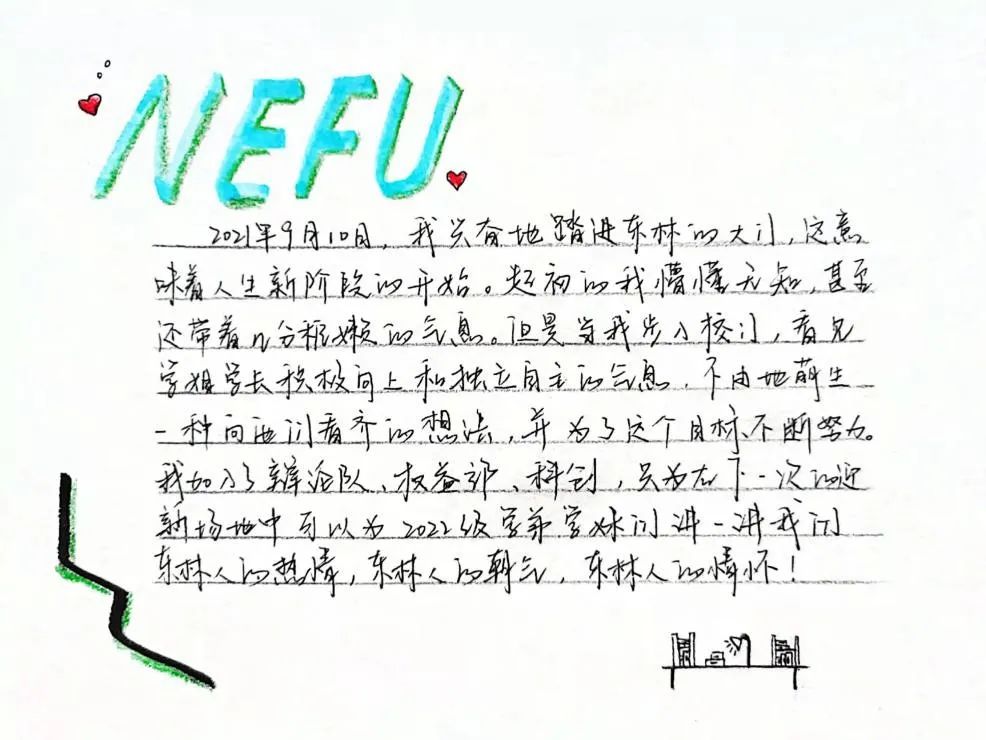 NEFU
2021年9月10日，我兴奋地踏进东林的大门，这意
味着人生新阶段的开始。起初的我懵懂无知，甚至
还带着几分稚嫩的气息。但是当我步入校门，看见
学姐学长积极向上和独立自主的气息，不由地萌生
一种向他们看齐的想法，并为了这个目标不断努力。
我加入了辩论队、权益部、科创，只为在下一次的迎
新场地中可以为2022级学弟学妹们讲一讲我们
东林人的热情，东林人的朝气，东林人的情怀！